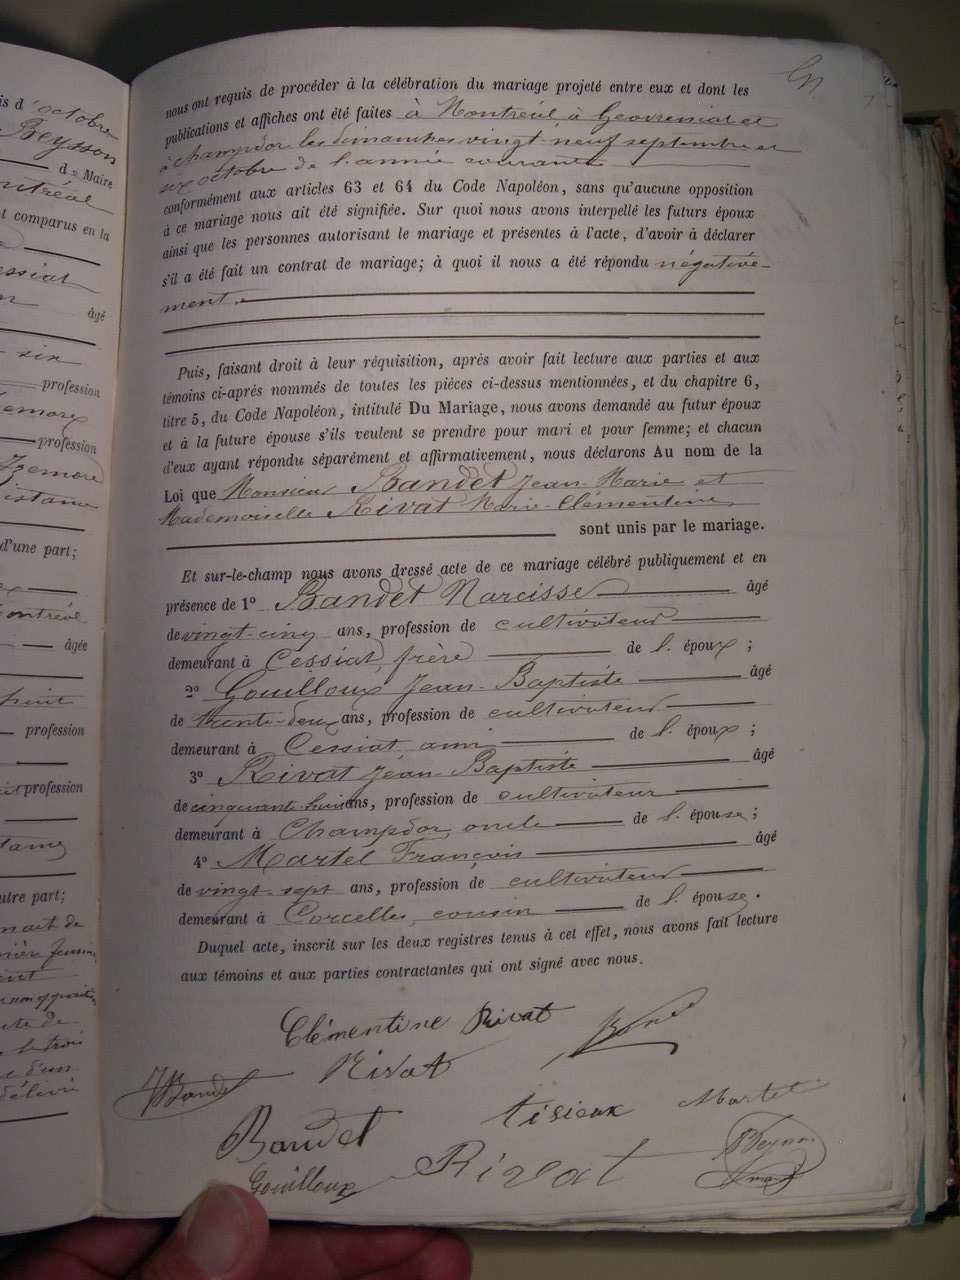 is d'octobre
Beysson
de Maire
ontréal
t comparus en la
essiat
âgé
six
profession
profession
Izernore
d'une part;
ontréal
âgée
huit
profession
profession
utre part;
nous ont requis de procéder à la célébration du mariage projeté entre eux et dont les
publications et affiches ont été faites à Montréal à Géovreissiat et
à Champdor les dimanches vingt-neuf septembre et
six octobre de l'année courante
conformément aux articles 63 et 64 du Code Napoléon, sans qu'aucune opposition
à ce mariage nous ait été signifiée. Sur quoi nous avons interpellé les futurs époux
ainsi que les personnes autorisant le mariage et présentes à l'acte, d'avoir à déclarer
s'il a été fait un contrat de mariage; à quoi il nous a été répondu négative-
ment.
Puis, faisant droit à leur réquisition, après avoir fait lecture aux parties et aux
témoins ci-après nommés de toutes les pièces ci-dessus mentionnées, et du chapitre 6,
titre 5, du Code Napoléon, intitulé Du Mariage, nous avons demandé au futur époux
et à la future épouse s'ils veulent se prendre pour mari et pour femme; et chacun
d'eux ayant répondu séparément et affirmativement, nous déclarons Au nom de la
Loi que Monsieur Bandet Jean-Marie et
Mademoiselle Rivat Marie-Clémentine
sont unis par le mariage.
Et sur-le-champ nous avons dressé acte de ce mariage célébré publiquement et en
présence de 1° Bandet Narcisse âgé
de vingt-cinq ans, profession de cultivateur
demeurant à Cessiat, frère de l'époux;
2° Gouilloux Jean-Baptiste âgé
de trente-deux ans, profession de cultivateur
demeurant à Cessiat ami de l'époux;
3° Rivat Jean-Baptiste âgé
de cinquante-huit ans, profession de cultivateur
demeurant à Champdor, oncle de l'épouse;
4° Martel François âgé
de vingt-sept ans, profession de cultivateur
demeurant à Corcelles, cousin de l'épouse.
Duquel acte, inscrit sur les deux registres tenus à cet effet, nous avons fait lecture
aux témoins et aux parties contractantes qui ont signé avec nous.
Clémentine Rivat
Rivat
JMBandet
Bandet tisieux Martel
Gouilloux Rivat